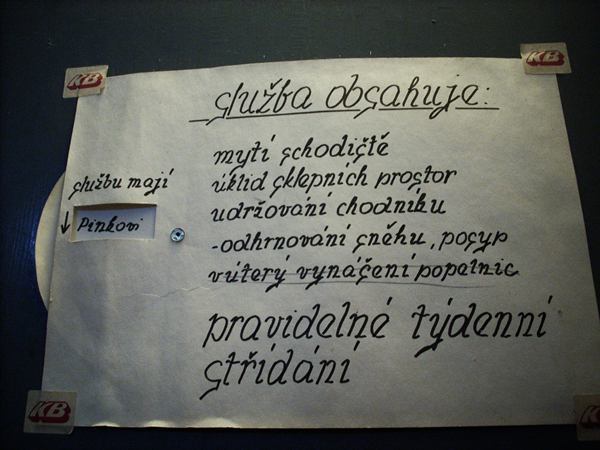 KB
KB
služba obsahuje:
mytí schodiště
úklid sklepních prostor
udržování chodníku
-odhrnování sněhu, posyp
v úterý vynášení popelnic
pravidelné týdenní
střídání
službu mají
↓ Pinkovi
KB
KB